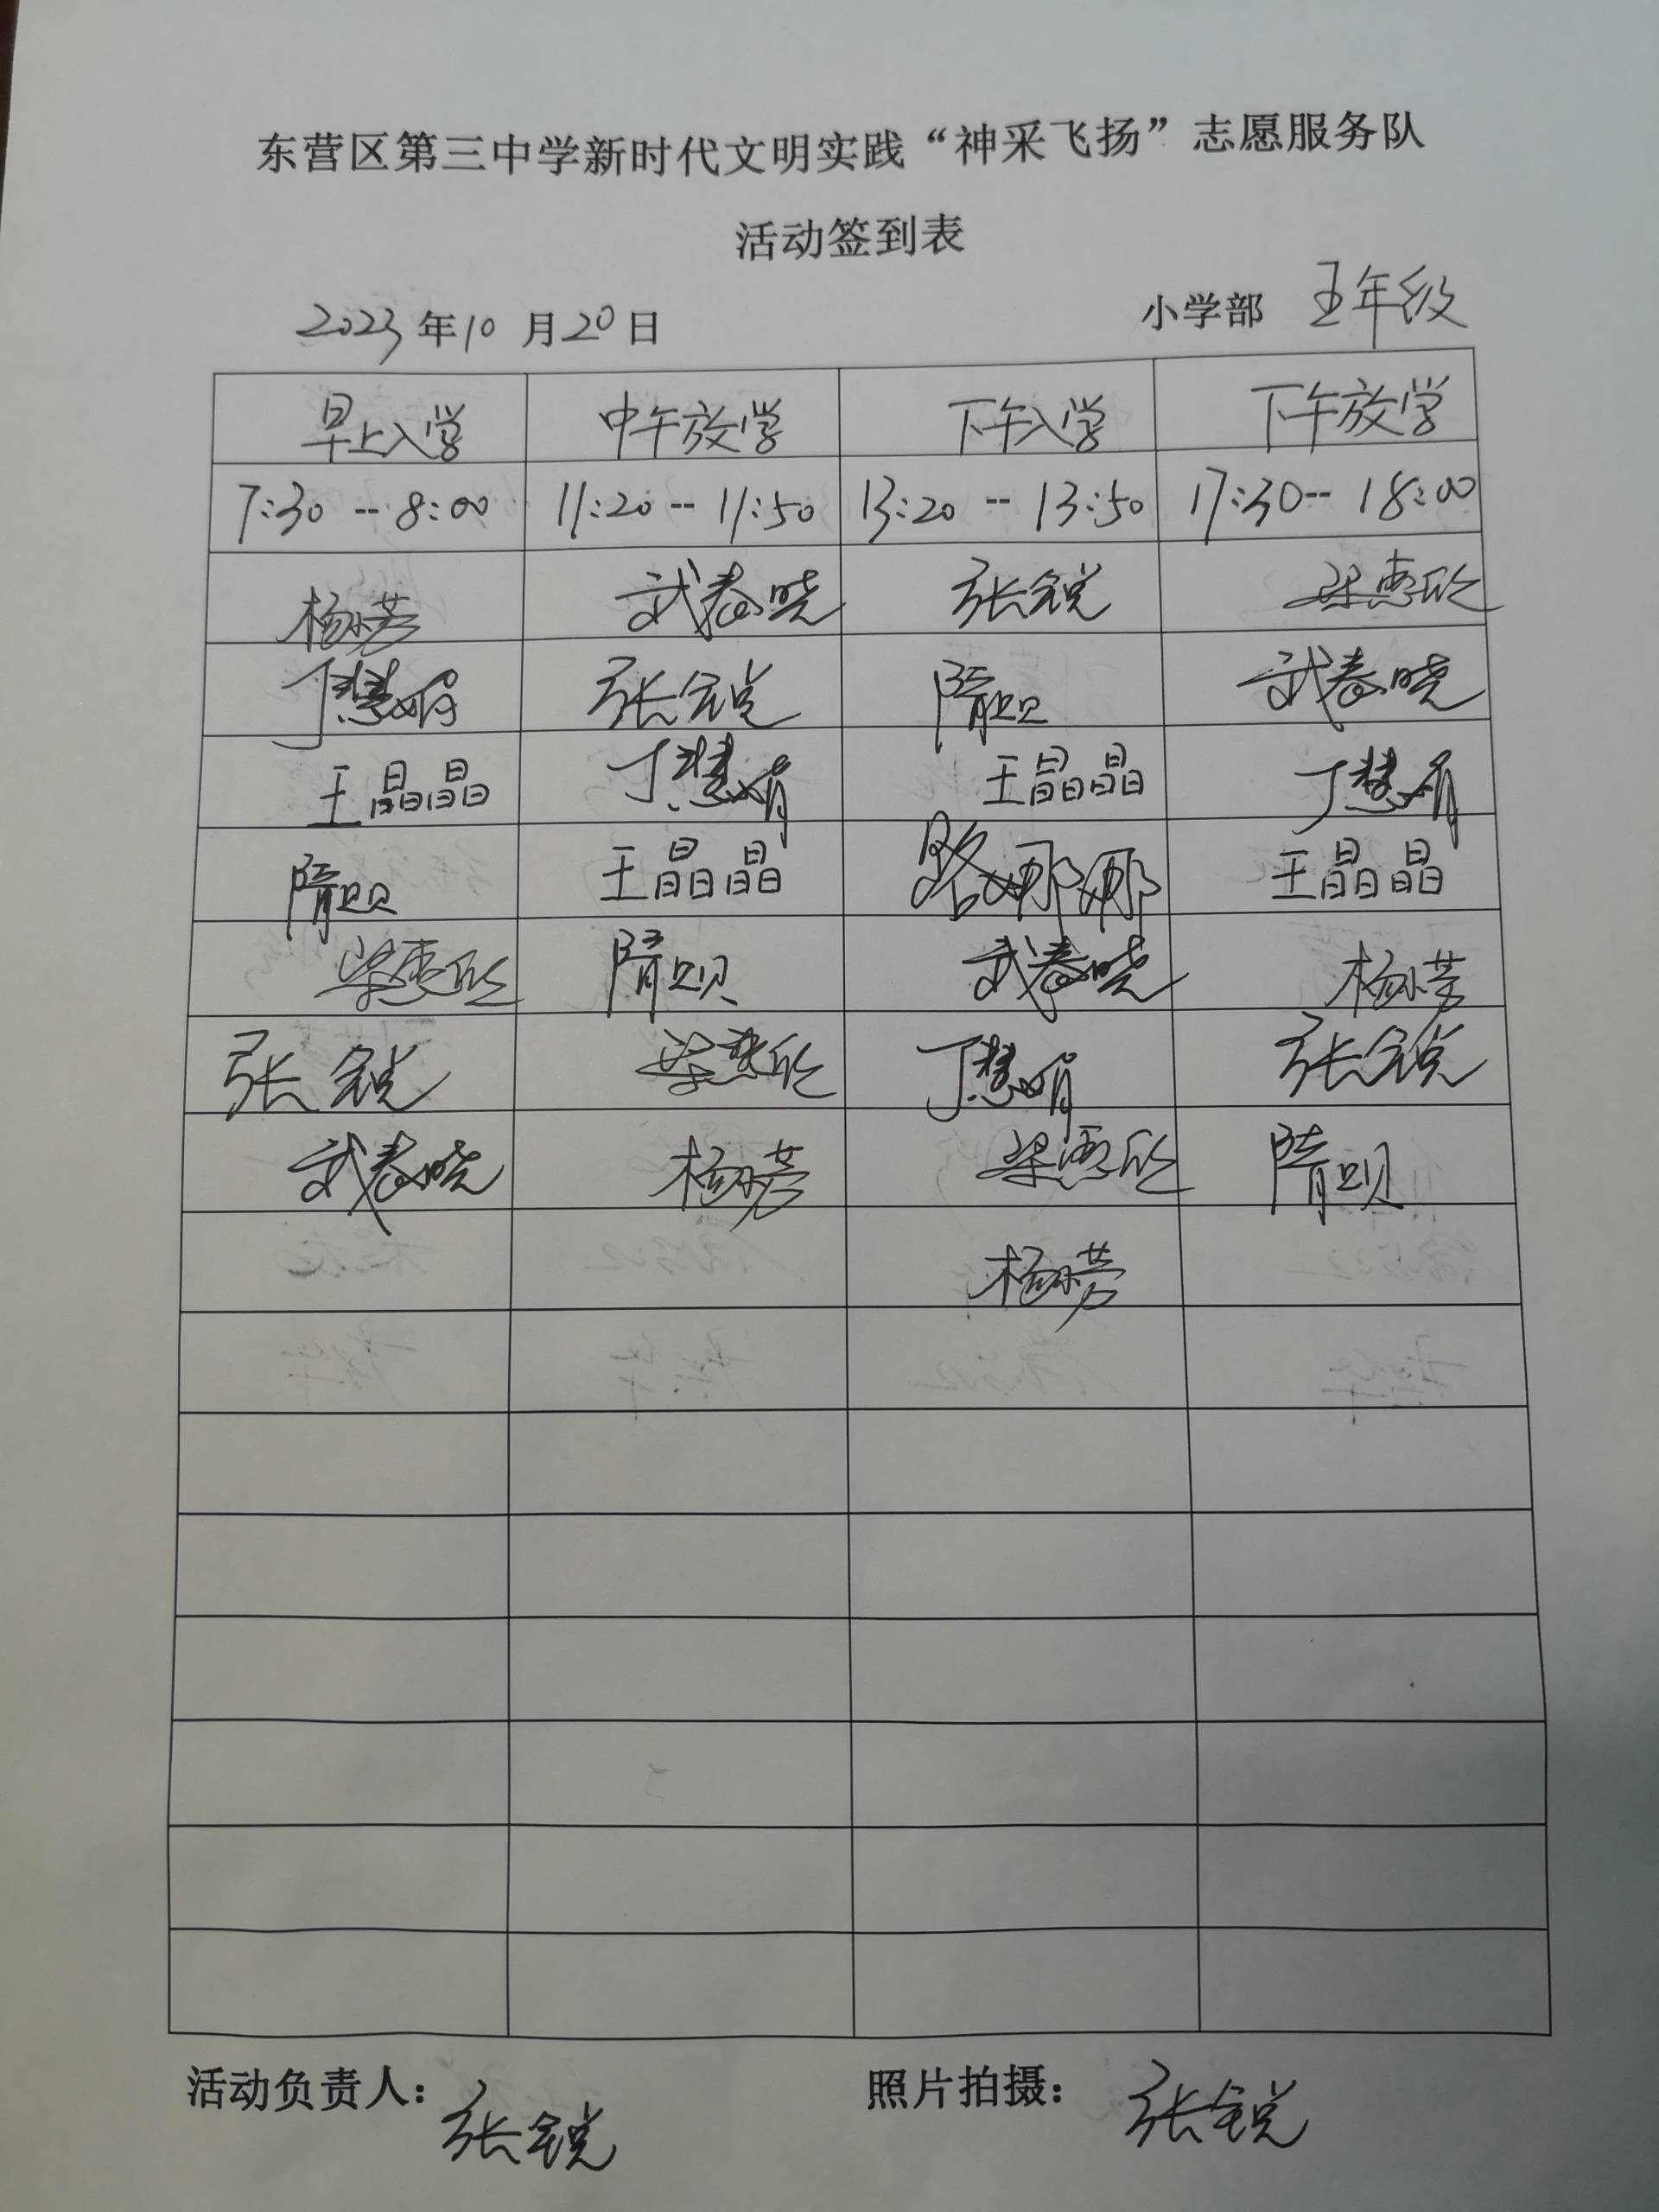 东营区第三中学新时代文明实践“神采飞扬”志愿服务队
活动签到表
2023年10月20日 小学部 五年级
早上入学 中午放学 下午入学 下午放学
7:30--8:00 11:20--11:50 13:20--13:50 17:30--18:00
杨小芳 武春晓 张锐 梁惠欣
丁慧娟 张锐 隋贝贝 武春晓
王晶晶 丁慧娟 王晶晶 丁慧娟
隋贝贝 王晶晶 路娜娜 王晶晶
梁惠欣 隋贝贝 武春晓 杨小芳
张锐 梁惠欣 丁慧娟 张锐
武春晓 杨小芳 梁惠欣 隋贝贝
杨小芳
活动负责人：张锐 照片拍摄：张锐